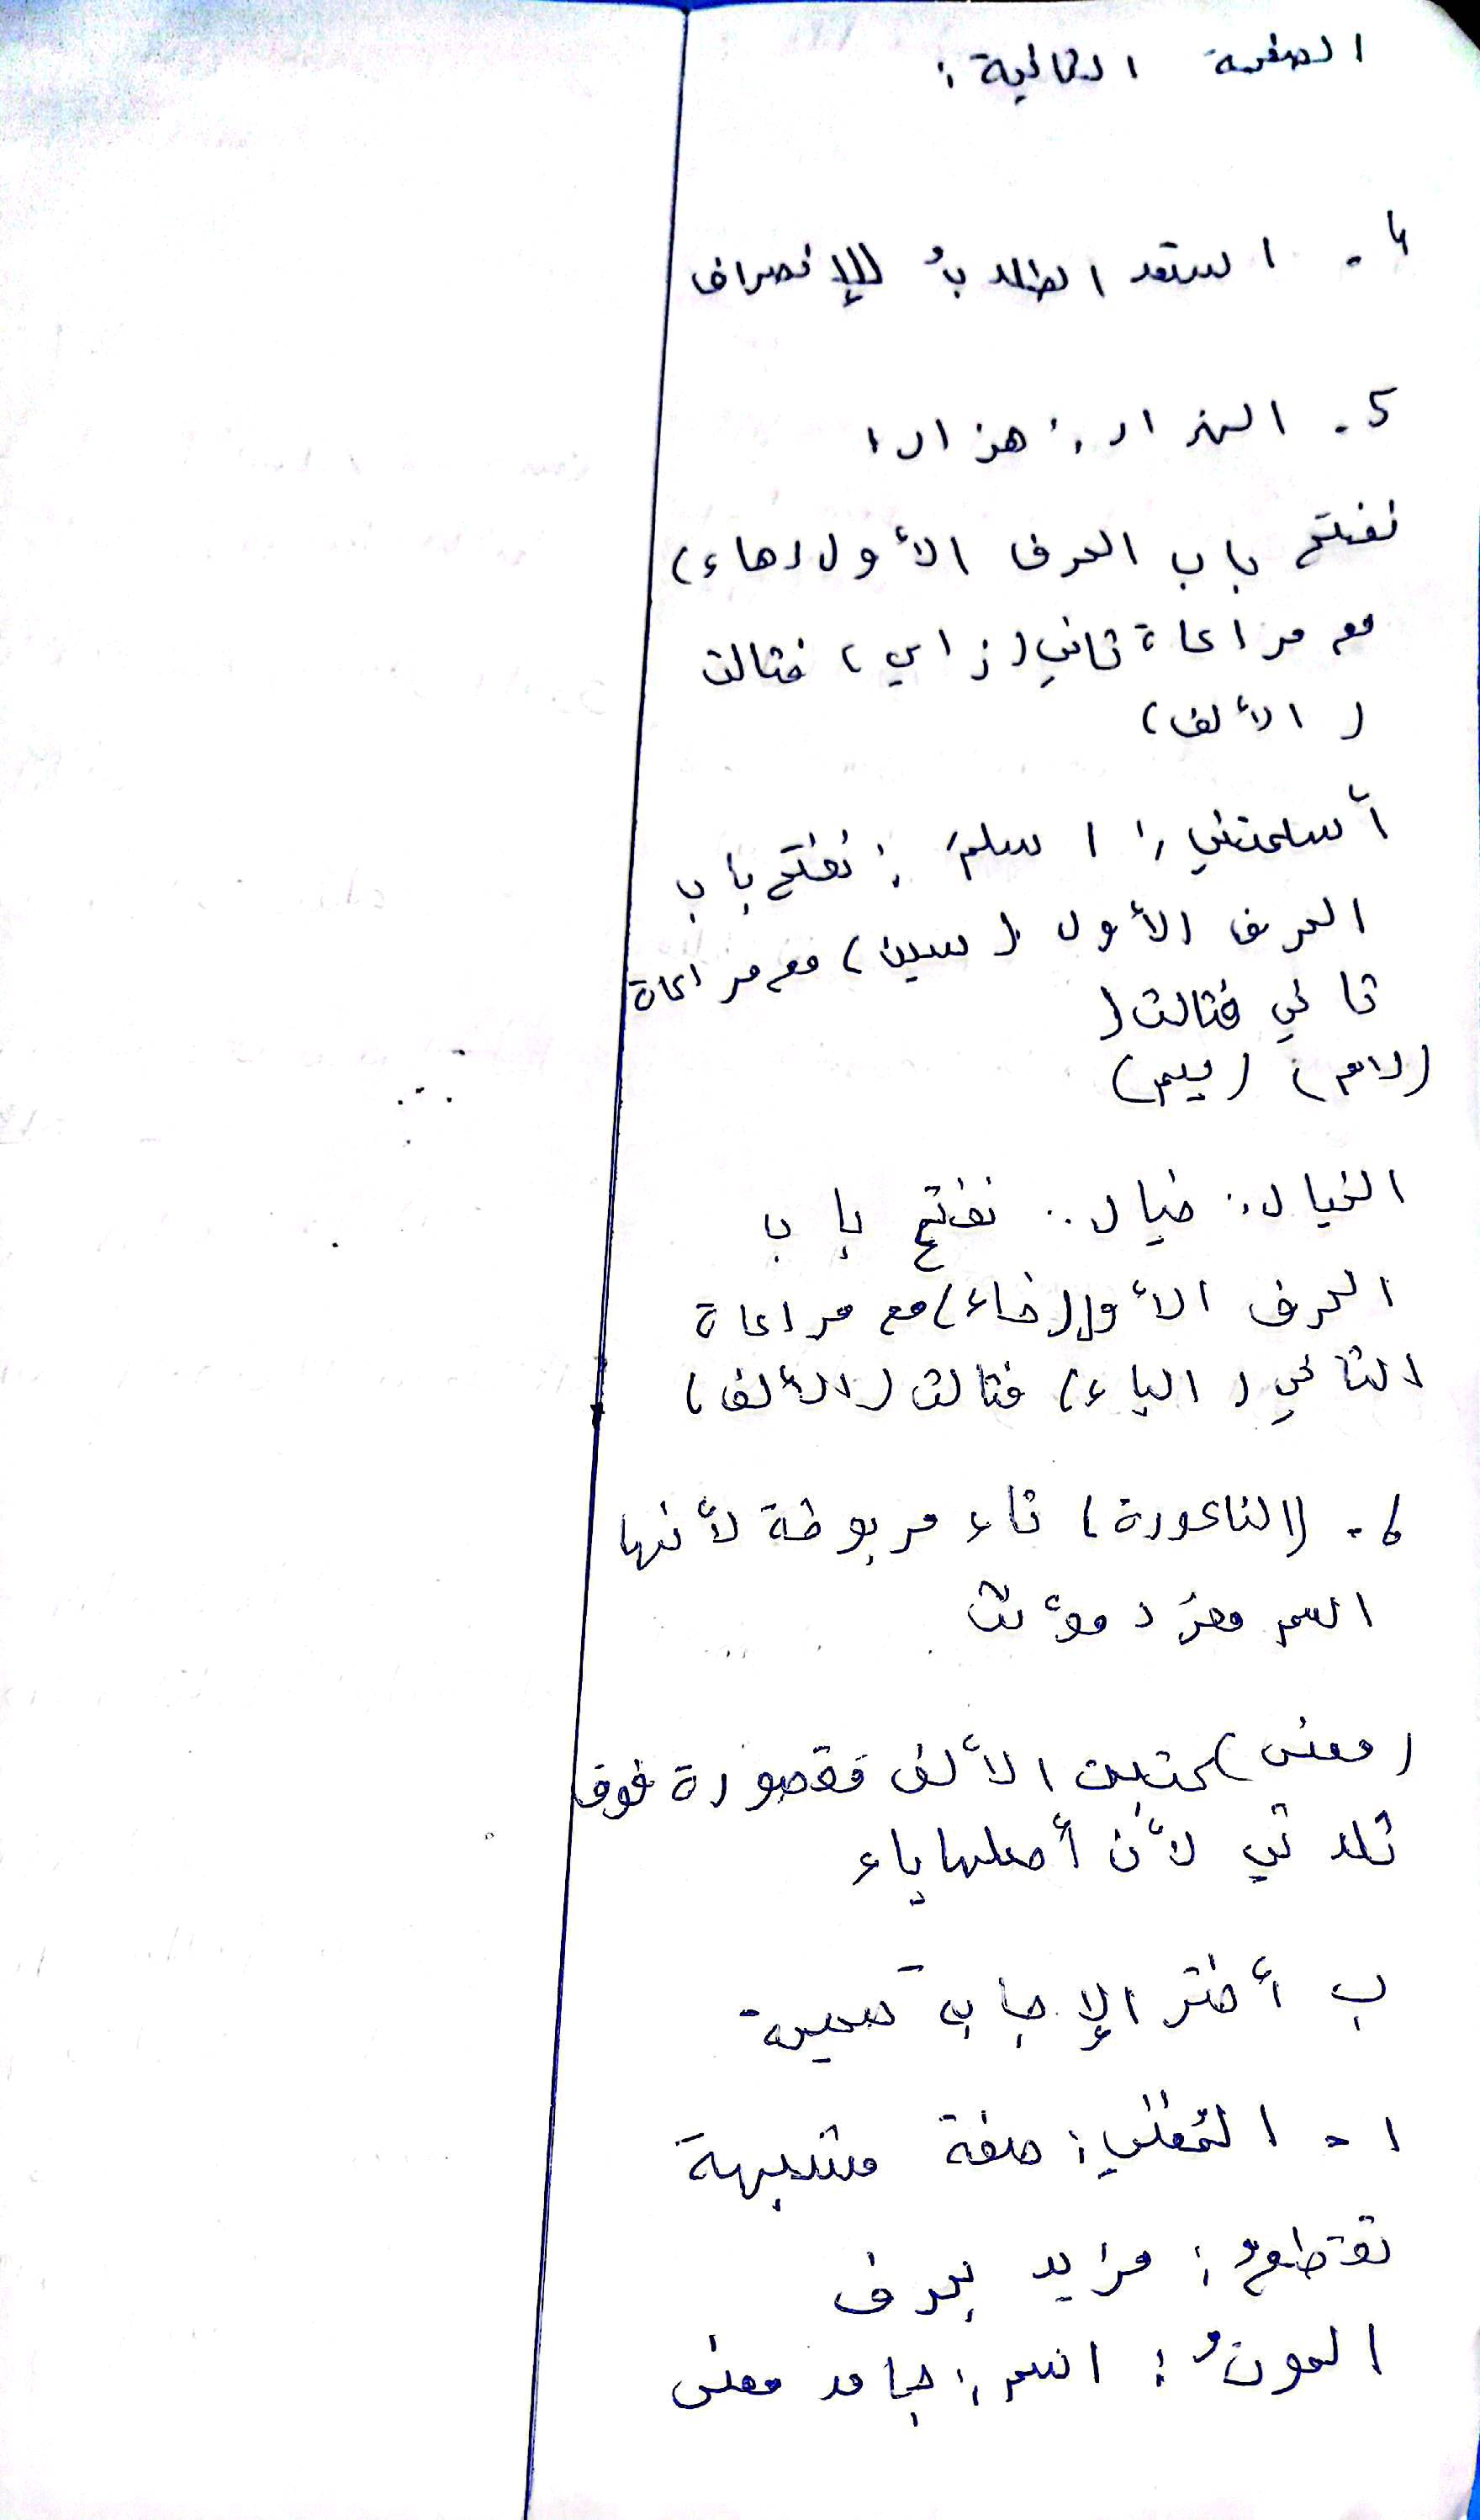 الصفحة الثانية:
4. استعد الطلابُ للإنصراف
5. الهزار: هزار:
نفتح باب الحرف الأول (هاء)
مع مراعاة ثاني (زاي) فثالث
(الألف)
أسلمتني: اسلمَ: نفتح باب
الحرف الأول (سين) مع مراعاة
ثاني فثالث (
(لام) (ميم)
الخيال: خيال: نفتح باب
الحرف الأول (خاء) مع مراعاة
الثاني (الياء) فثالث (الألف)
6. (الناعورة) تاء مربوطة لأنها
اسم مفرد مؤنث
(معنى) كتبت الألف مقصورة فوق
ثلاثي لأن أصلها ياء
ب أختر الإجابة صحيحة
1 - المُغني: صفة مشبهة
تقتطعُ: مزيد بحرف
الموتُ: اسم: جامد معنى